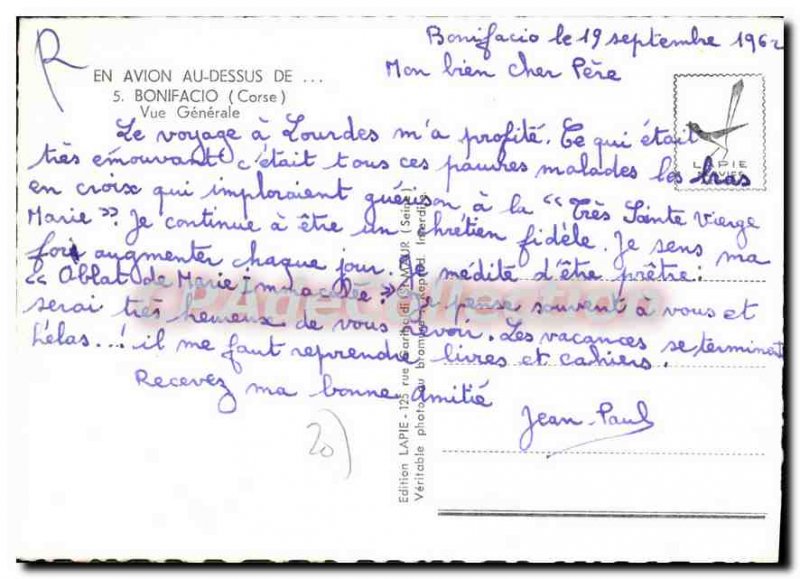 R
Bonifacio le 19 septembre 1962
EN AVION AU-DESSUS DE ...
5. BONIFACIO (Corse)
Vue Générale
Mon bien cher Père
Le voyage à Lourdes m'a profité. Ce qui était
très émouvant c'était tous ces pauvres malades les bras
en croix qui imploraient guérison à la "Très Sainte Vierge
Marie". Je continue à être un chrétien fidèle. Je sens ma
foi augmenter chaque jour. Je médite d'être prêtre :
"Oblat de Marie Immaculée." Je pense souvent à vous et
serai très heureux de vous revoir. Les vacances se terminent
hélas...! il me faut reprendre livres et cahiers.
Recevez ma bonne amitié
Jean-Paul
20)
LAPIE
Edition LAPIE - 125 rue Garibaldi St-MAUR (Seine)
Véritable photo au bromure - Reprod. Interdite
CPAgeCollection